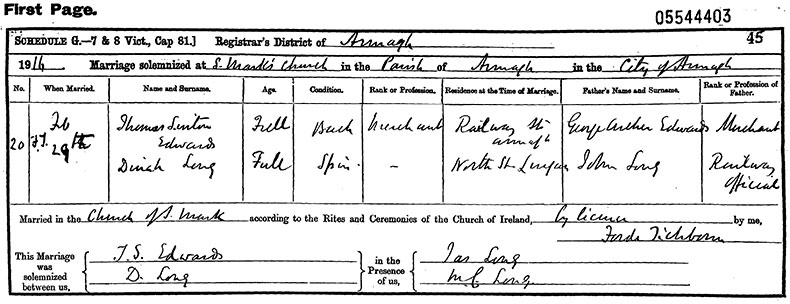 First Page.
05544403
SCHEDULE G.—7 & 8 Vict., Cap 81.] Registrar's District of Armagh 45
1916 Marriage solemnized at S. Mark's Church in the Parish of Armagh in the City of Armagh
No. When Married. Name and Surname. Age. Condition. Rank or Profession. Residence at the Time of Marriage. Father's Name and Surname. Rank or Profession of Father.
20 F.T. Feb 29th Thomas Sinton Edwards Full Bach Merchant Railway St Armagh George Archer Edwards Merchant
Dinah Long Full Spin – North St Lurgan John Long Railway Official
Married in the Church of S. Mark according to the Rites and Ceremonies of the Church of Ireland, by licence by me,
Forde Tichborne
This Marriage was solemnized between us, T. S. Edwards in the Presence of us, Jas Long
D. Long M. E. Long